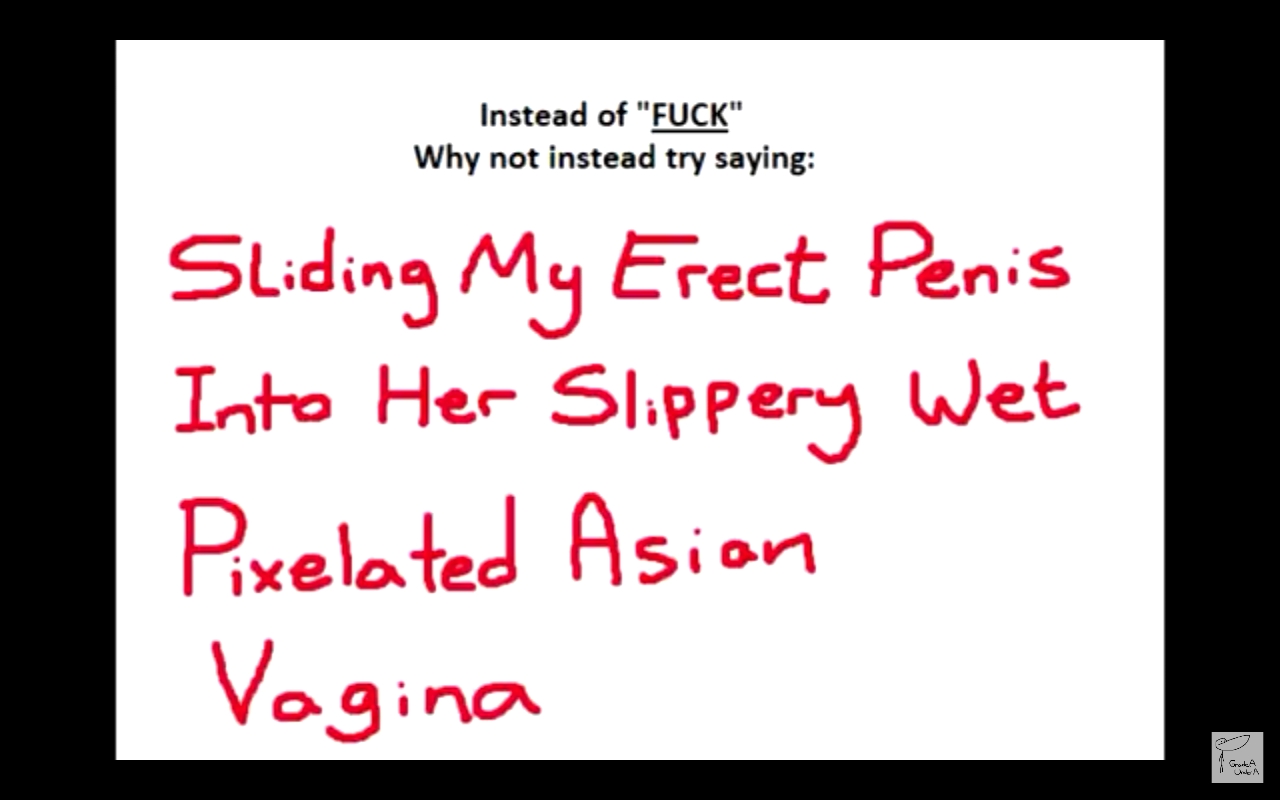 Instead of "FUCK"
Why not instead try saying:
Sliding My Erect Penis
Into Her Slippery Wet
Pixelated Asian
Vagina
GradeA
UnderA